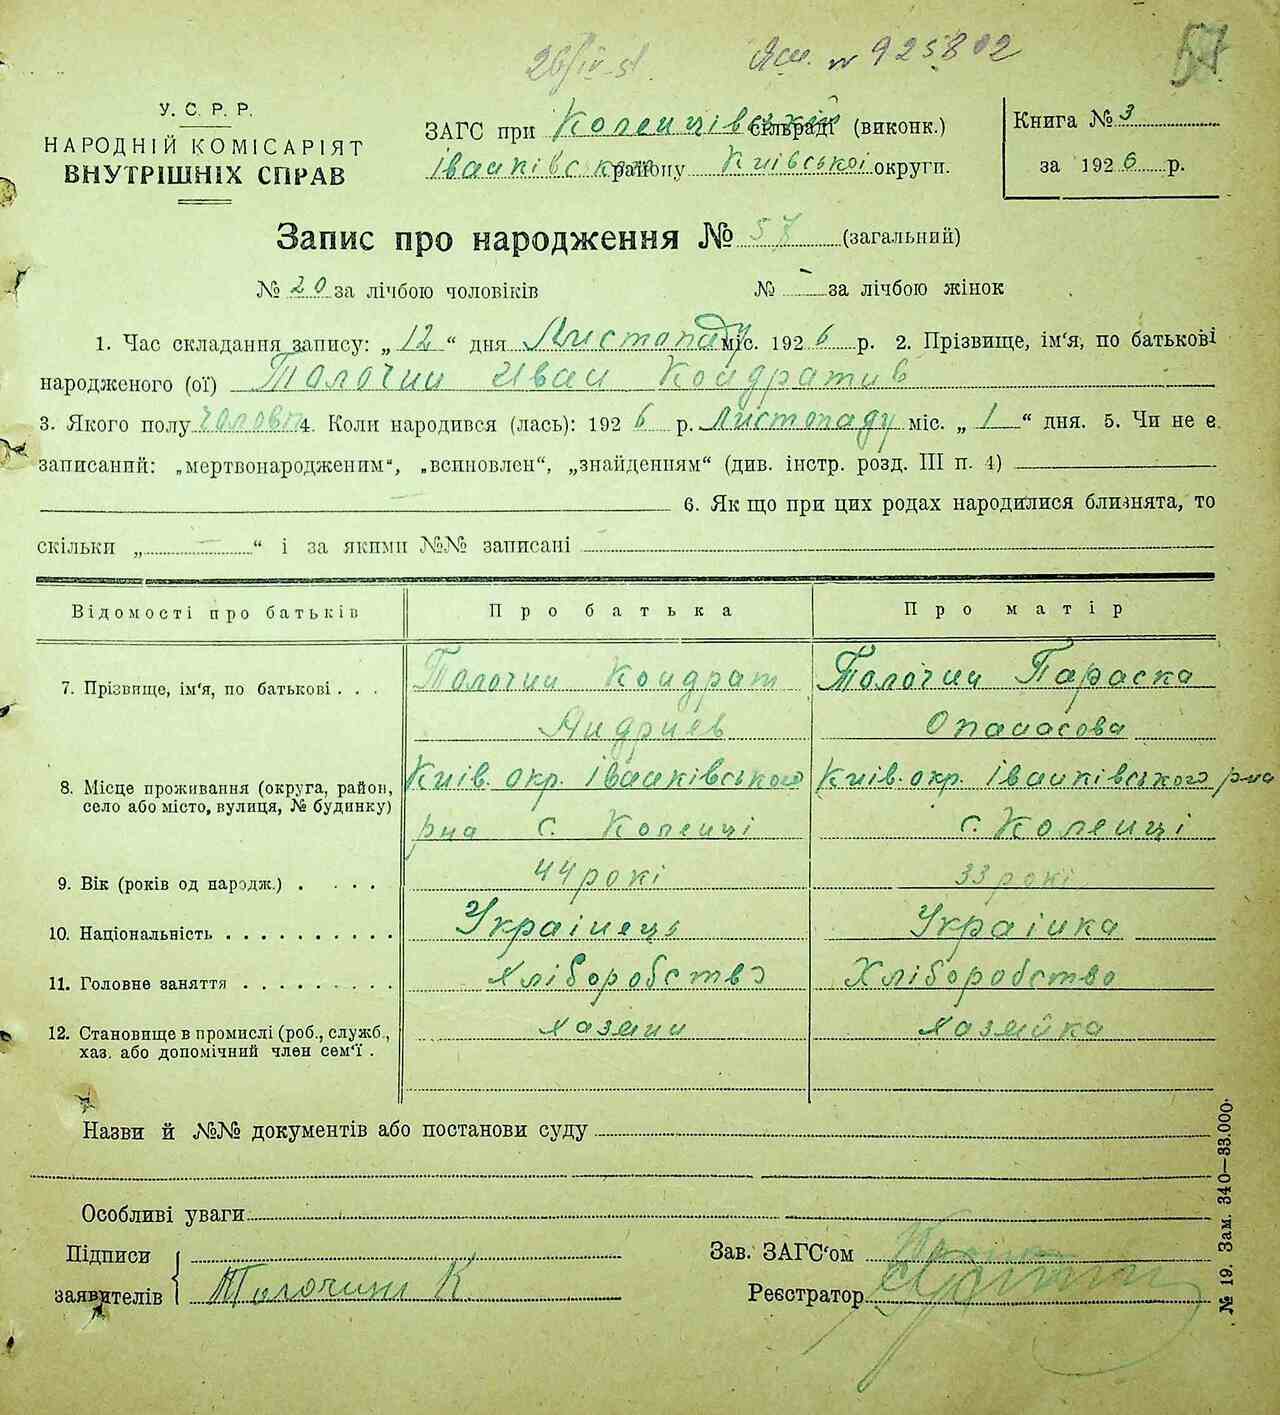 26/IV-51. Яш. № 925802 57
У. С. Р. Р.
НАРОДНІЙ КОМІСАРІЯТ
ВНУТРІШНІХ СПРАВ
ЗАГС при Коленцівській сільраді (виконк.)
Іванківського району Київської округи.
Книга № 3
за 1926 р.
Запис про народження № 57 (загальний)
№ 20 за лічбою чоловіків № — за лічбою жінок
1. Час складання запису: „12“ дня Листопаду міс. 1926 р. 2. Прізвище, ім'я, по батькові
народженого (ої) Толочин Иван Кондратив
3. Якого полу чоловіч 4. Коли народився (лась): 1926 р. Листопаду міс. „1“ дня. 5. Чи не є
записаний: „мертвонародженим“, „всиновлен“, „знайденням“ (див. інстр. розд. III п. 4)
6. Як що при цих родах народилися близнята, то
скільки „—“ і за якими №№ записані
Відомості про батьків Про батька Про матір
7. Прізвище, ім'я, по батькові . . . Толочин Кондрат Толочин Параска
Андриев Опанасова
8. Місце проживання (округа, район, Київ. окр. Іванківського Київ. окр. Іванківського рна
село або місто, вулиця, № будинку) рна с. Коленці с. Коленці
9. Вік (років од народж.) . . . . . 44 рокі 33 рокі
10. Національність . . . . . . . . . . Украінець Украінка
11. Головне заняття . . . . . . . . . Хліборобство Хліборобство
12. Становище в промислі (роб., служб., хазяин хазяйка
хаз. або допомічний член сем'ї .
Назви й №№ документів або постанови суду
Особливі уваги
Підписи Зав. ЗАГС'ом
заявителів Толочин К. Реєстратор
№ 19. Зам. 340—33.000.